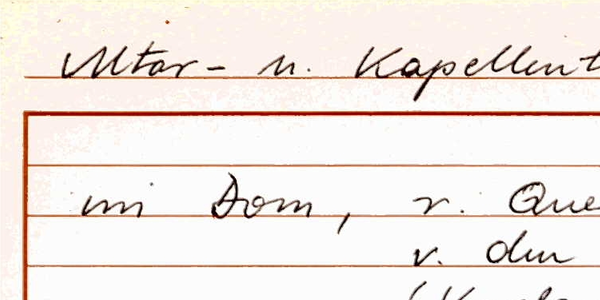 Altar- u. Kapellent
im Dom, r. Que
v. den